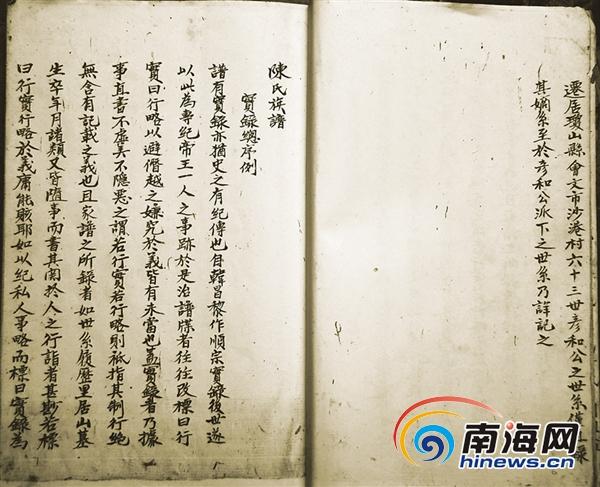 遷居瓊山縣會文市沙港村六十三世彥和公之世系僅 錄
其嫡系至於彥和公派下之世系乃詳記之
陳氏族譜
實錄總序例
譜有實錄亦猶史之有紀傳也自韓昌黎作順宗實錄後世遂
以此為專紀帝王一人之事跡於是治譜牒者往往改標曰行
實曰行略以避僭越之嫌究於義皆有未當也蓋實錄者乃據
事直書不虛美不隱惡之謂若行實若行略則祗指其制行絕
無含有記載之義也且家譜之所錄者如世系履歷里居山墓
生卒年月諸類又皆隨事而書其關於人之行誼者甚尠若標
曰行實行略於義庸能賅耶如以紀私人事略而標曰實錄為
南海网
hinews.cn